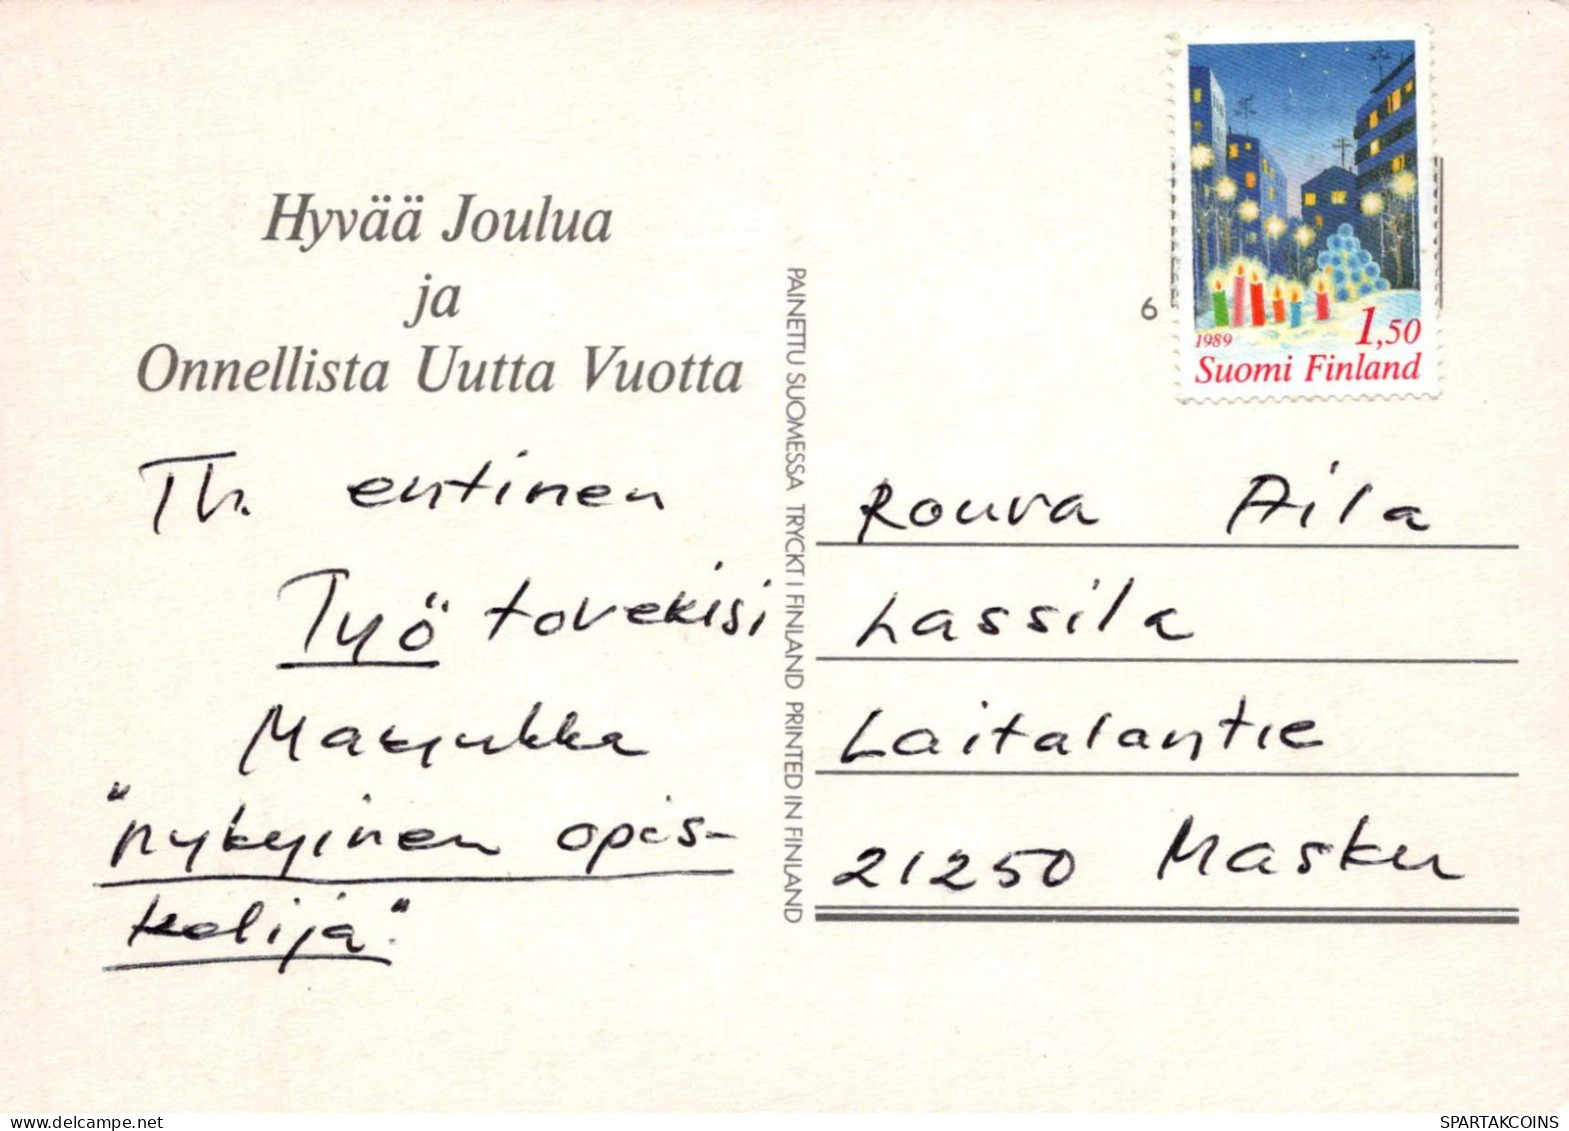 Hyvää Joulua
ja
Onnellista Uutta Vuotta
Th. entinen
Työ toverisi
Marjukka
"nykyinen opis-
kelija".
PAINETTU SUOMESSA TRYCKT I FINLAND PRINTED IN FINLAND
6
1989
1,50
Suomi Finland
Rouva Aila
Lassila
Laitalantie
21250 Masku
SPARTAKCOINS